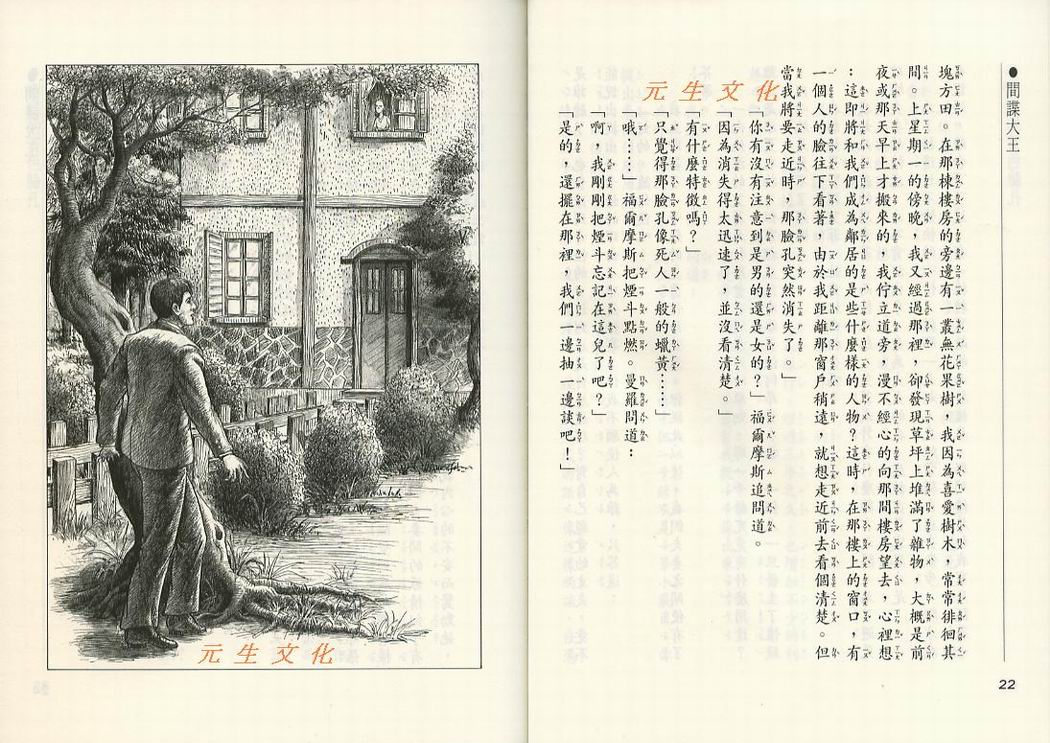 ●間諜大王
塊方田。在那棟樓房的旁邊有一叢無花果樹，我因為喜愛樹木，常常徘徊其
間。上星期一的傍晚，我又經過那裡，卻發現草坪上堆滿了雜物，大概是前
夜或那天早上才搬來的，我佇立道旁，漫不經心的向那間樓房望去，心裡想
：這即將和我們成為鄰居的是些什麼樣的人物？這時，在那樓上的窗口，有
一個人的臉往下看著，由於我距離那窗戶稍遠，就想走近前去看個清楚。但
當我將要走近時，那臉孔突然消失了。」
「你有沒有注意到是男的還是女的？」福爾摩斯追問道。
「因為消失得太迅速了，並沒看清楚。」
「有什麼特徵嗎？」
「只覺得那臉孔像死人一般的蠟黃……」
「哦……」福爾摩斯把煙斗點燃。曼羅問道：
「啊，我剛剛把煙斗忘記在這兒了吧？」
「是的，還擺在那裡，我們一邊抽一邊談吧！」
22
元生文化
元生文化